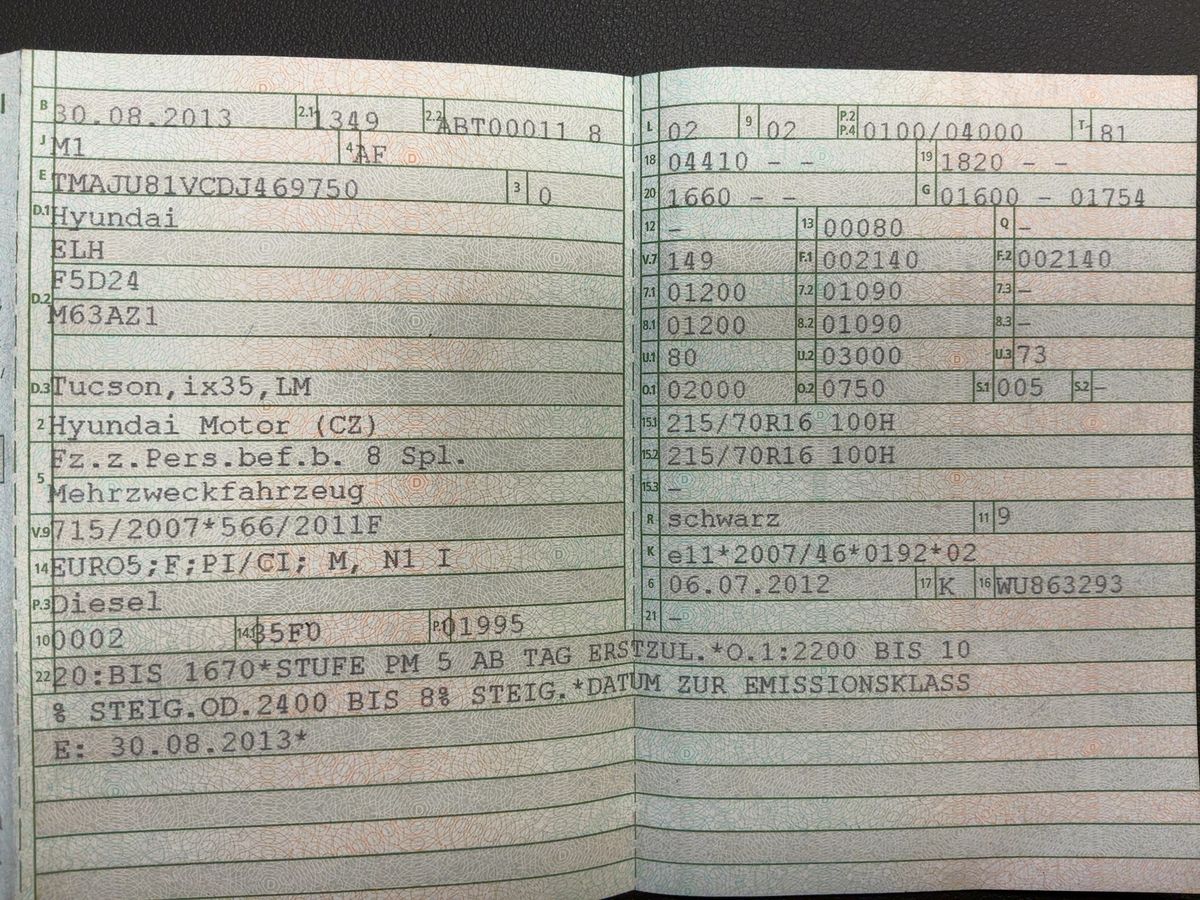 B 30.08.2013 2.1 1349 2.2 ABT00011 8
J M1 4 AF
E TMAJU81VCDJ469750 3 0
D.1 Hyundai
ELH
F5D24
D.2 M63AZ1
D.3 Tucson,ix35,LM
2 Hyundai Motor (CZ)
Fz.z.Pers.bef.b. 8 Spl.
5 Mehrzweckfahrzeug
V.9 715/2007*566/2011F
14 EURO5;F;PI/CI; M, N1 I
P.3 Diesel
10 0002 14.1 35F0 P.1 01995
22 20:BIS 1670*STUFE PM 5 AB TAG ERSTZUL.*O.1:2200 BIS 10
% STEIG.OD.2400 BIS 8% STEIG.*DATUM ZUR EMISSIONSKLASS
E: 30.08.2013*
L 02 9 02 P.2 P.4 0100/04000 T 181
18 04410 – – 19 1820 – –
20 1660 – – G 01600 – 01754
12 – 13 00080 Q –
V.7 149 F.1 002140 F.2 002140
7.1 01200 7.2 01090 7.3 –
8.1 01200 8.2 01090 8.3 –
U.1 80 U.2 03000 U.3 73
O.1 02000 O.2 0750 S.1 005 S.2 –
15.1 215/70R16 100H
15.2 215/70R16 100H
15.3 –
R schwarz 11 9
K e11*2007/46*0192*02
6 06.07.2012 17 K 16 WU863293
21 –